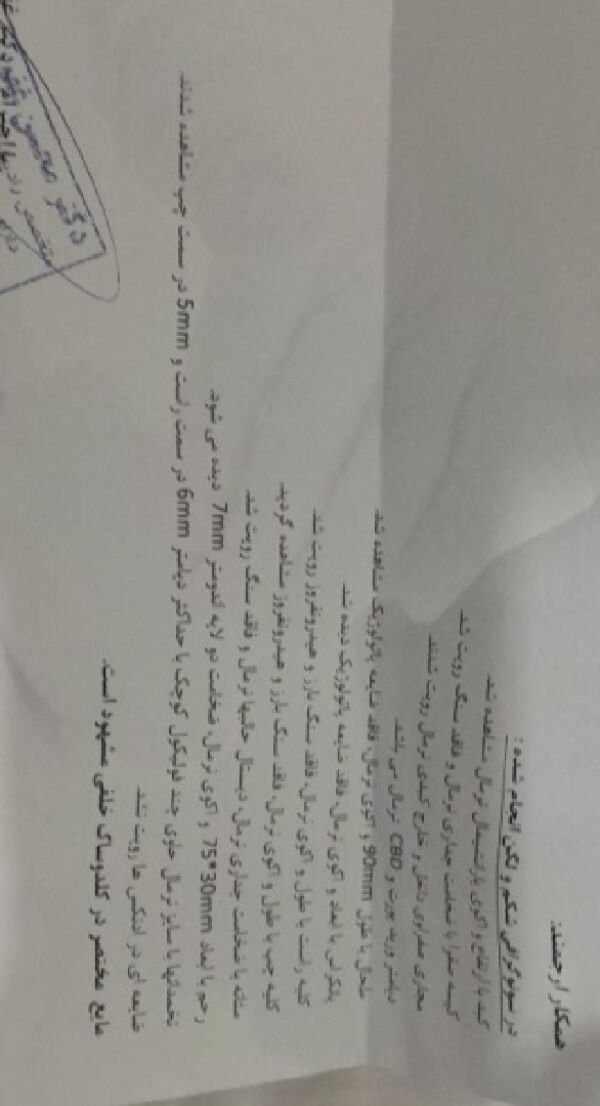 همکار ارجمند:
در سونوگرافی شکم و لگن انجام شده :
کبد با ارتفاع و اکوی پارانشیمال نرمال مشاهده شد.
کیسه صفرا با ضخامت جداری نرمال و فاقد سنگ رویت شد.
مجاری صفراوی داخل و خارج کبدی نرمال رویت شدند.
دیامتر ورید پورت و CBD نرمال می باشد.
طحال با طول 90mm و اکوی نرمال، فاقد ضایعه پاتولوژیک مشاهده شد.
پانکراس با ابعاد و اکوی نرمال، فاقد ضایعه پاتولوژیک دیده شد.
کلیه راست با طول و اکوی نرمال، فاقد سنگ بارز و هیدرونفروز رویت شد.
کلیه چپ با طول و اکوی نرمال، فاقد سنگ بارز و هیدرونفروز مشاهده گردید.
مثانه با ضخامت جداری نرمال، دیستال حالبها نرمال و فاقد سنگ رویت شد.
رحم با ابعاد 75*30mm و اکوی نرمال، ضخامت دو لایه اندومتر 7mm دیده می شود.
تخمدانها با سایز نرمال حاوی چند فولیکول کوچک با حداکثر دیامتر 6mm در سمت راست و 5mm در سمت چپ مشاهده شدند.
ضایعه ای در آدنکس ها رویت نشد.
مایع مختصر در کلدوساک خلفی مشهود است.
دکتر محسن
متخصص